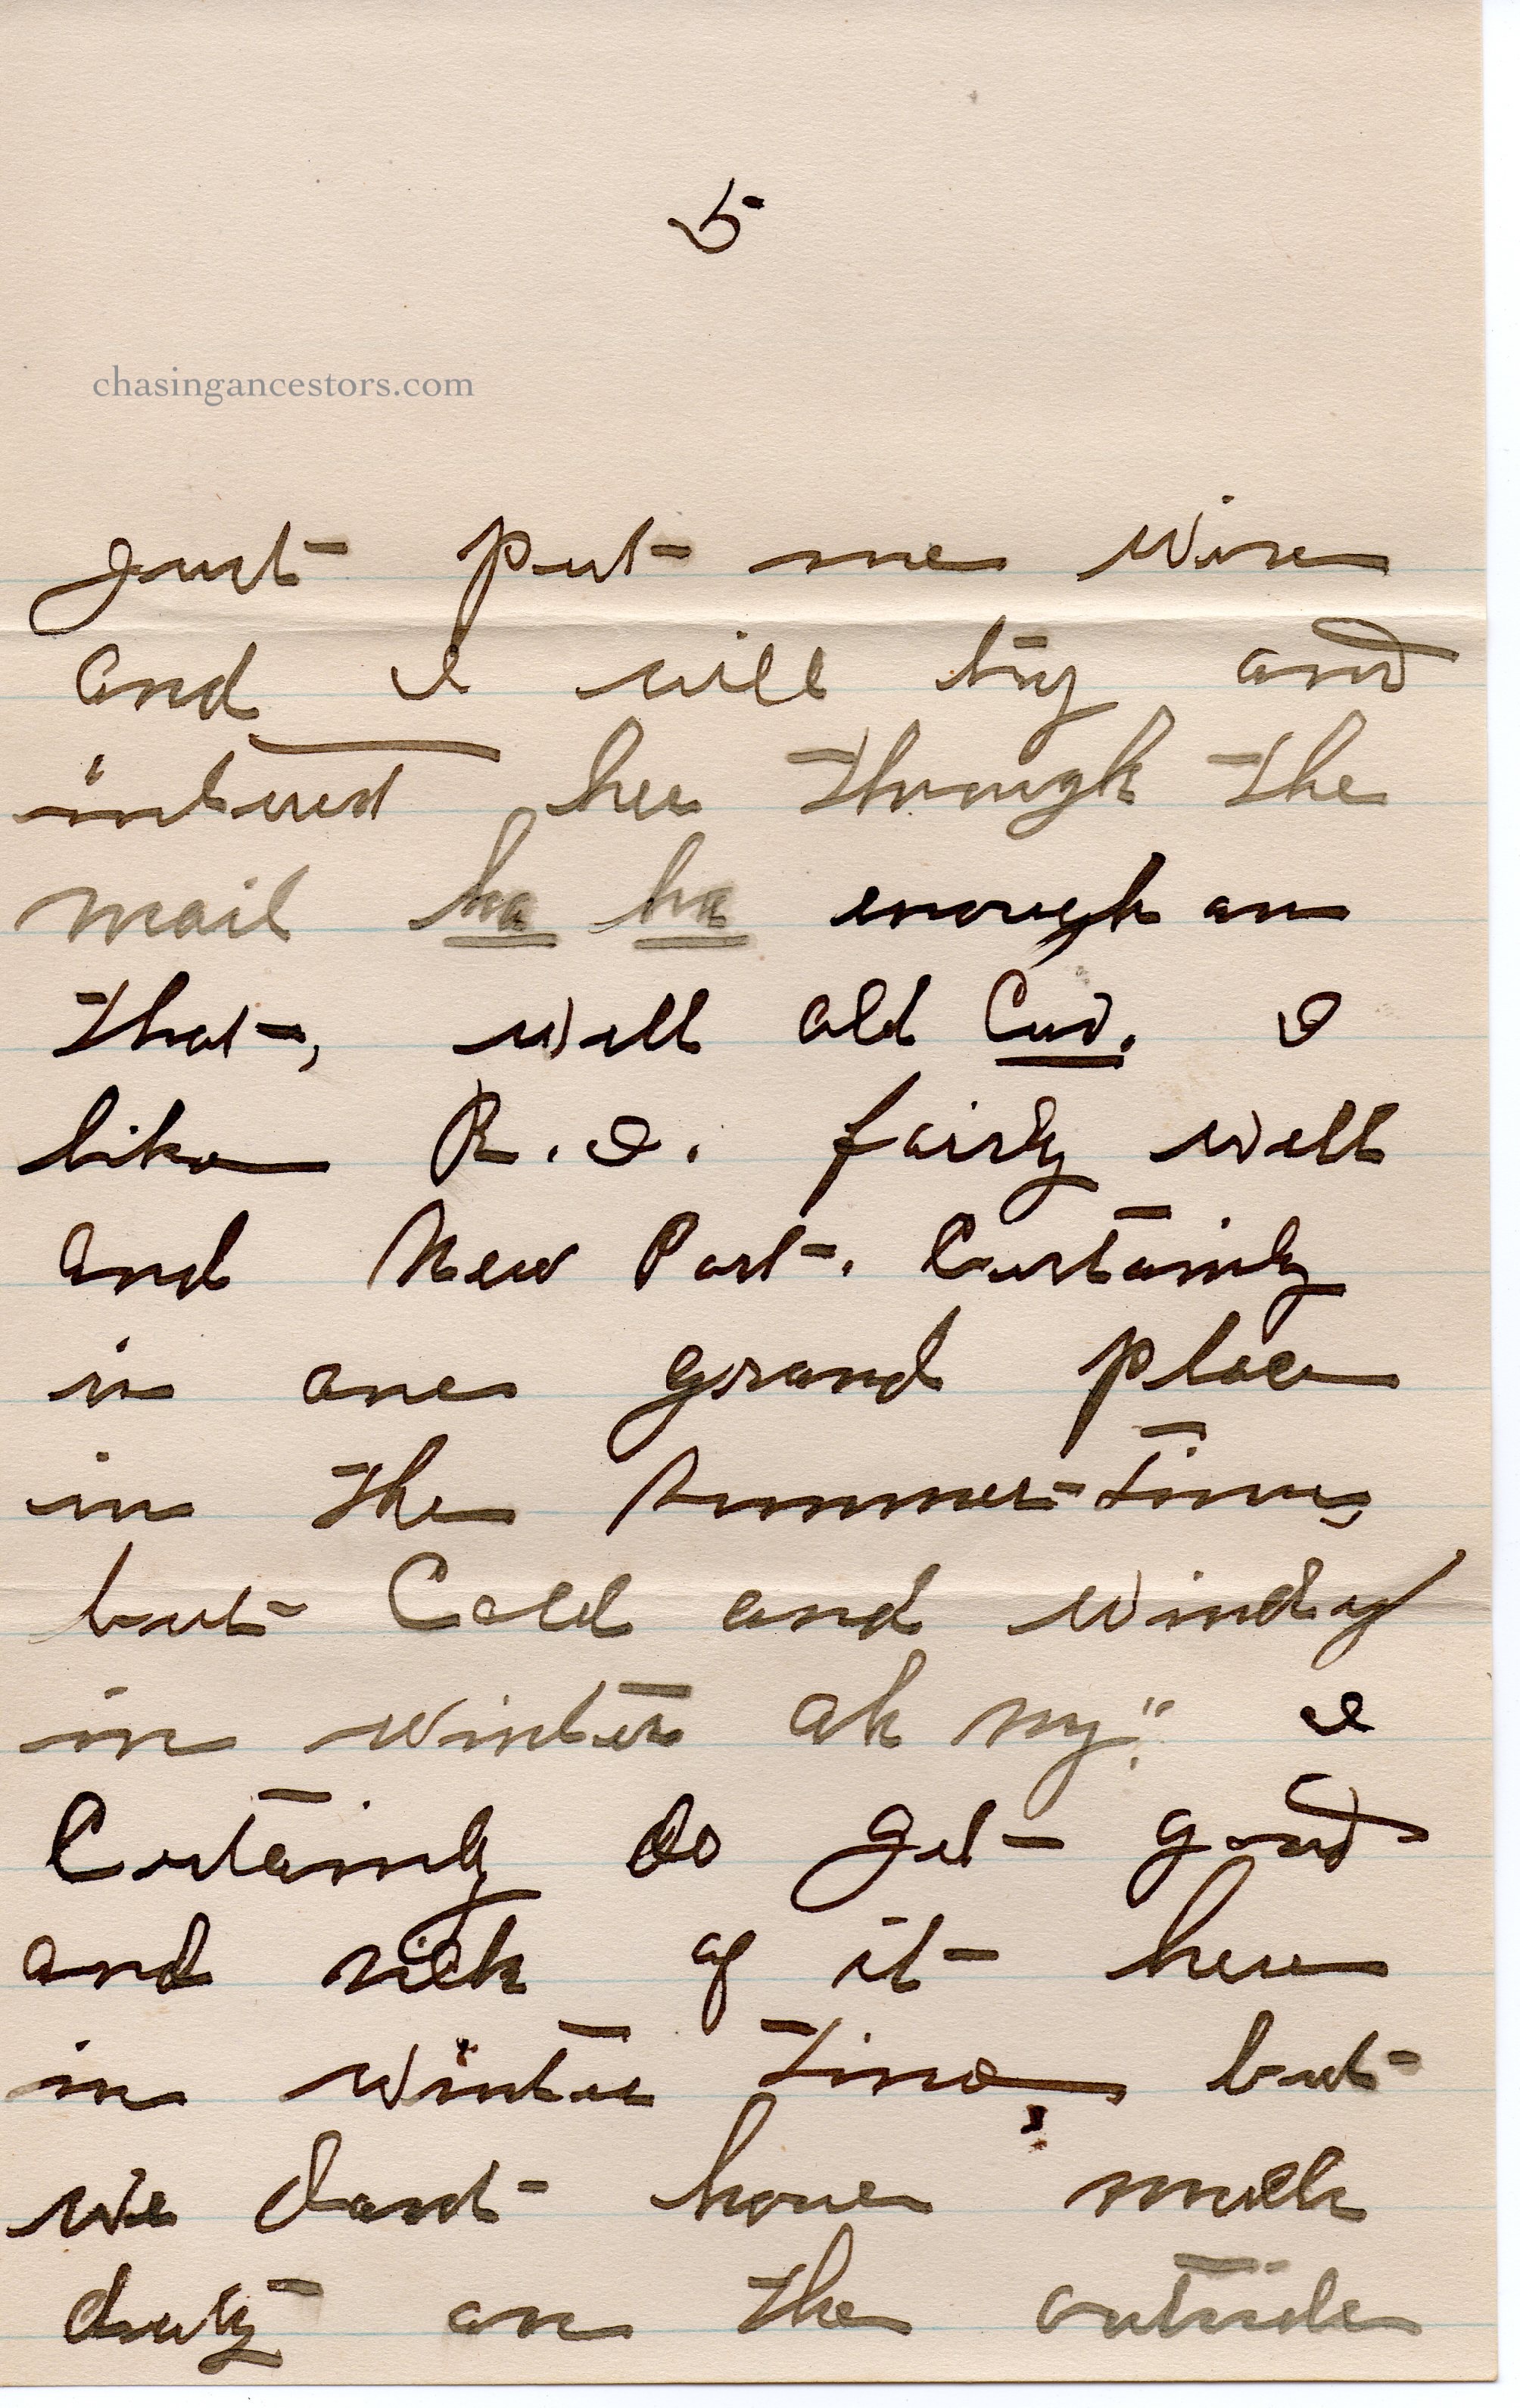 5
chasingancestors.com
Just put me wise
and I will try and
interest her through the
mail ha ha enough on
that, well old Cuz. I
like R. I. fairly well
and New Port. Certainly
is one grand place
in the summer time,
but Cold and windy
in winter oh my!! I
Certainly do get good
and sick of it here
in winter time, but
we dont have much
duty on the outside